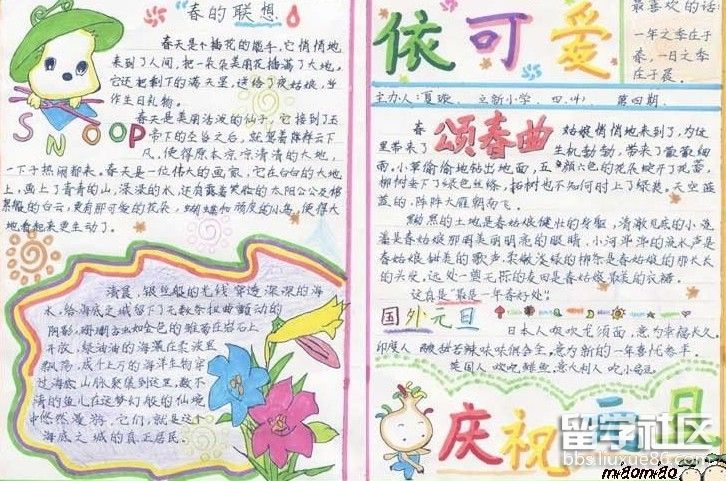 "春的联想"
春天是个插花的能手,它悄悄地
来到了人间,把一朵朵美丽花插满了大地,
它还把剩下的满天星,送给了夜姑娘,当
作生日礼物。
春天是美丽活波的仙子,它接到玉
帝下的圣旨之后,就
凡,使得原本凉凉清清的大地,
一下子热闹起来。春天是一位伟大的画家,它在白白的大地
上,画上了青青的山,
的白云,更有那可爱的花朵,蝴蝶和顽皮的小鸟,使得大
地看起来更生动了。
SNOOP
清晨,银丝般的光线穿透深深的海
水,给海底之城留下了无数条扭曲颤动的
阴影,珊瑚
开放,绿油油的海藻在柔波里
飘荡,成千上万的海洋生物穿
过海底山脉聚集到这里,数不
清的鱼儿在这梦幻般的仙境
中悠然漫游,它们,就是这个
海底之城的真正居民。
依可爱
最喜欢的话:
一年之季在于
春,一日之季
在于晨。
主办人:夏璇 立新小学 四.(4) 第四期
颂春曲
春姑娘悄悄地来到了,为这
里带来了生机勃勃,带来了蒙蒙细
雨。小草偷偷地钻出地面,五颜六色的花朵绽开了花蕾,
柳树垂下了绿色丝绦,柏树也不知何时上了绿装。天空蓝
蓝的,阵阵大雁朝南飞。
黝黑的土地是春姑娘健壮的身躯,清澈见底的小池
温是春姑娘那明美丽明亮的眼睛,小河哗哗的流水声是
春姑娘甜美的歌声,柔嫩淡绿的柳条是春姑娘的那长长
的头发,远处一望无际的麦田是春姑娘最美的衣裙。
这真是"最是一年春好处"。
国外元旦
日本人喜欢吃龙须面,意为福长久
印度人 酸甜苦辣味味俱全,意为新的一年喜忧参半。
英国人 欢吃鲑鱼。意大利人 吃
庆祝元旦
留学社区
bbs.liuxue86.com
miaomiao